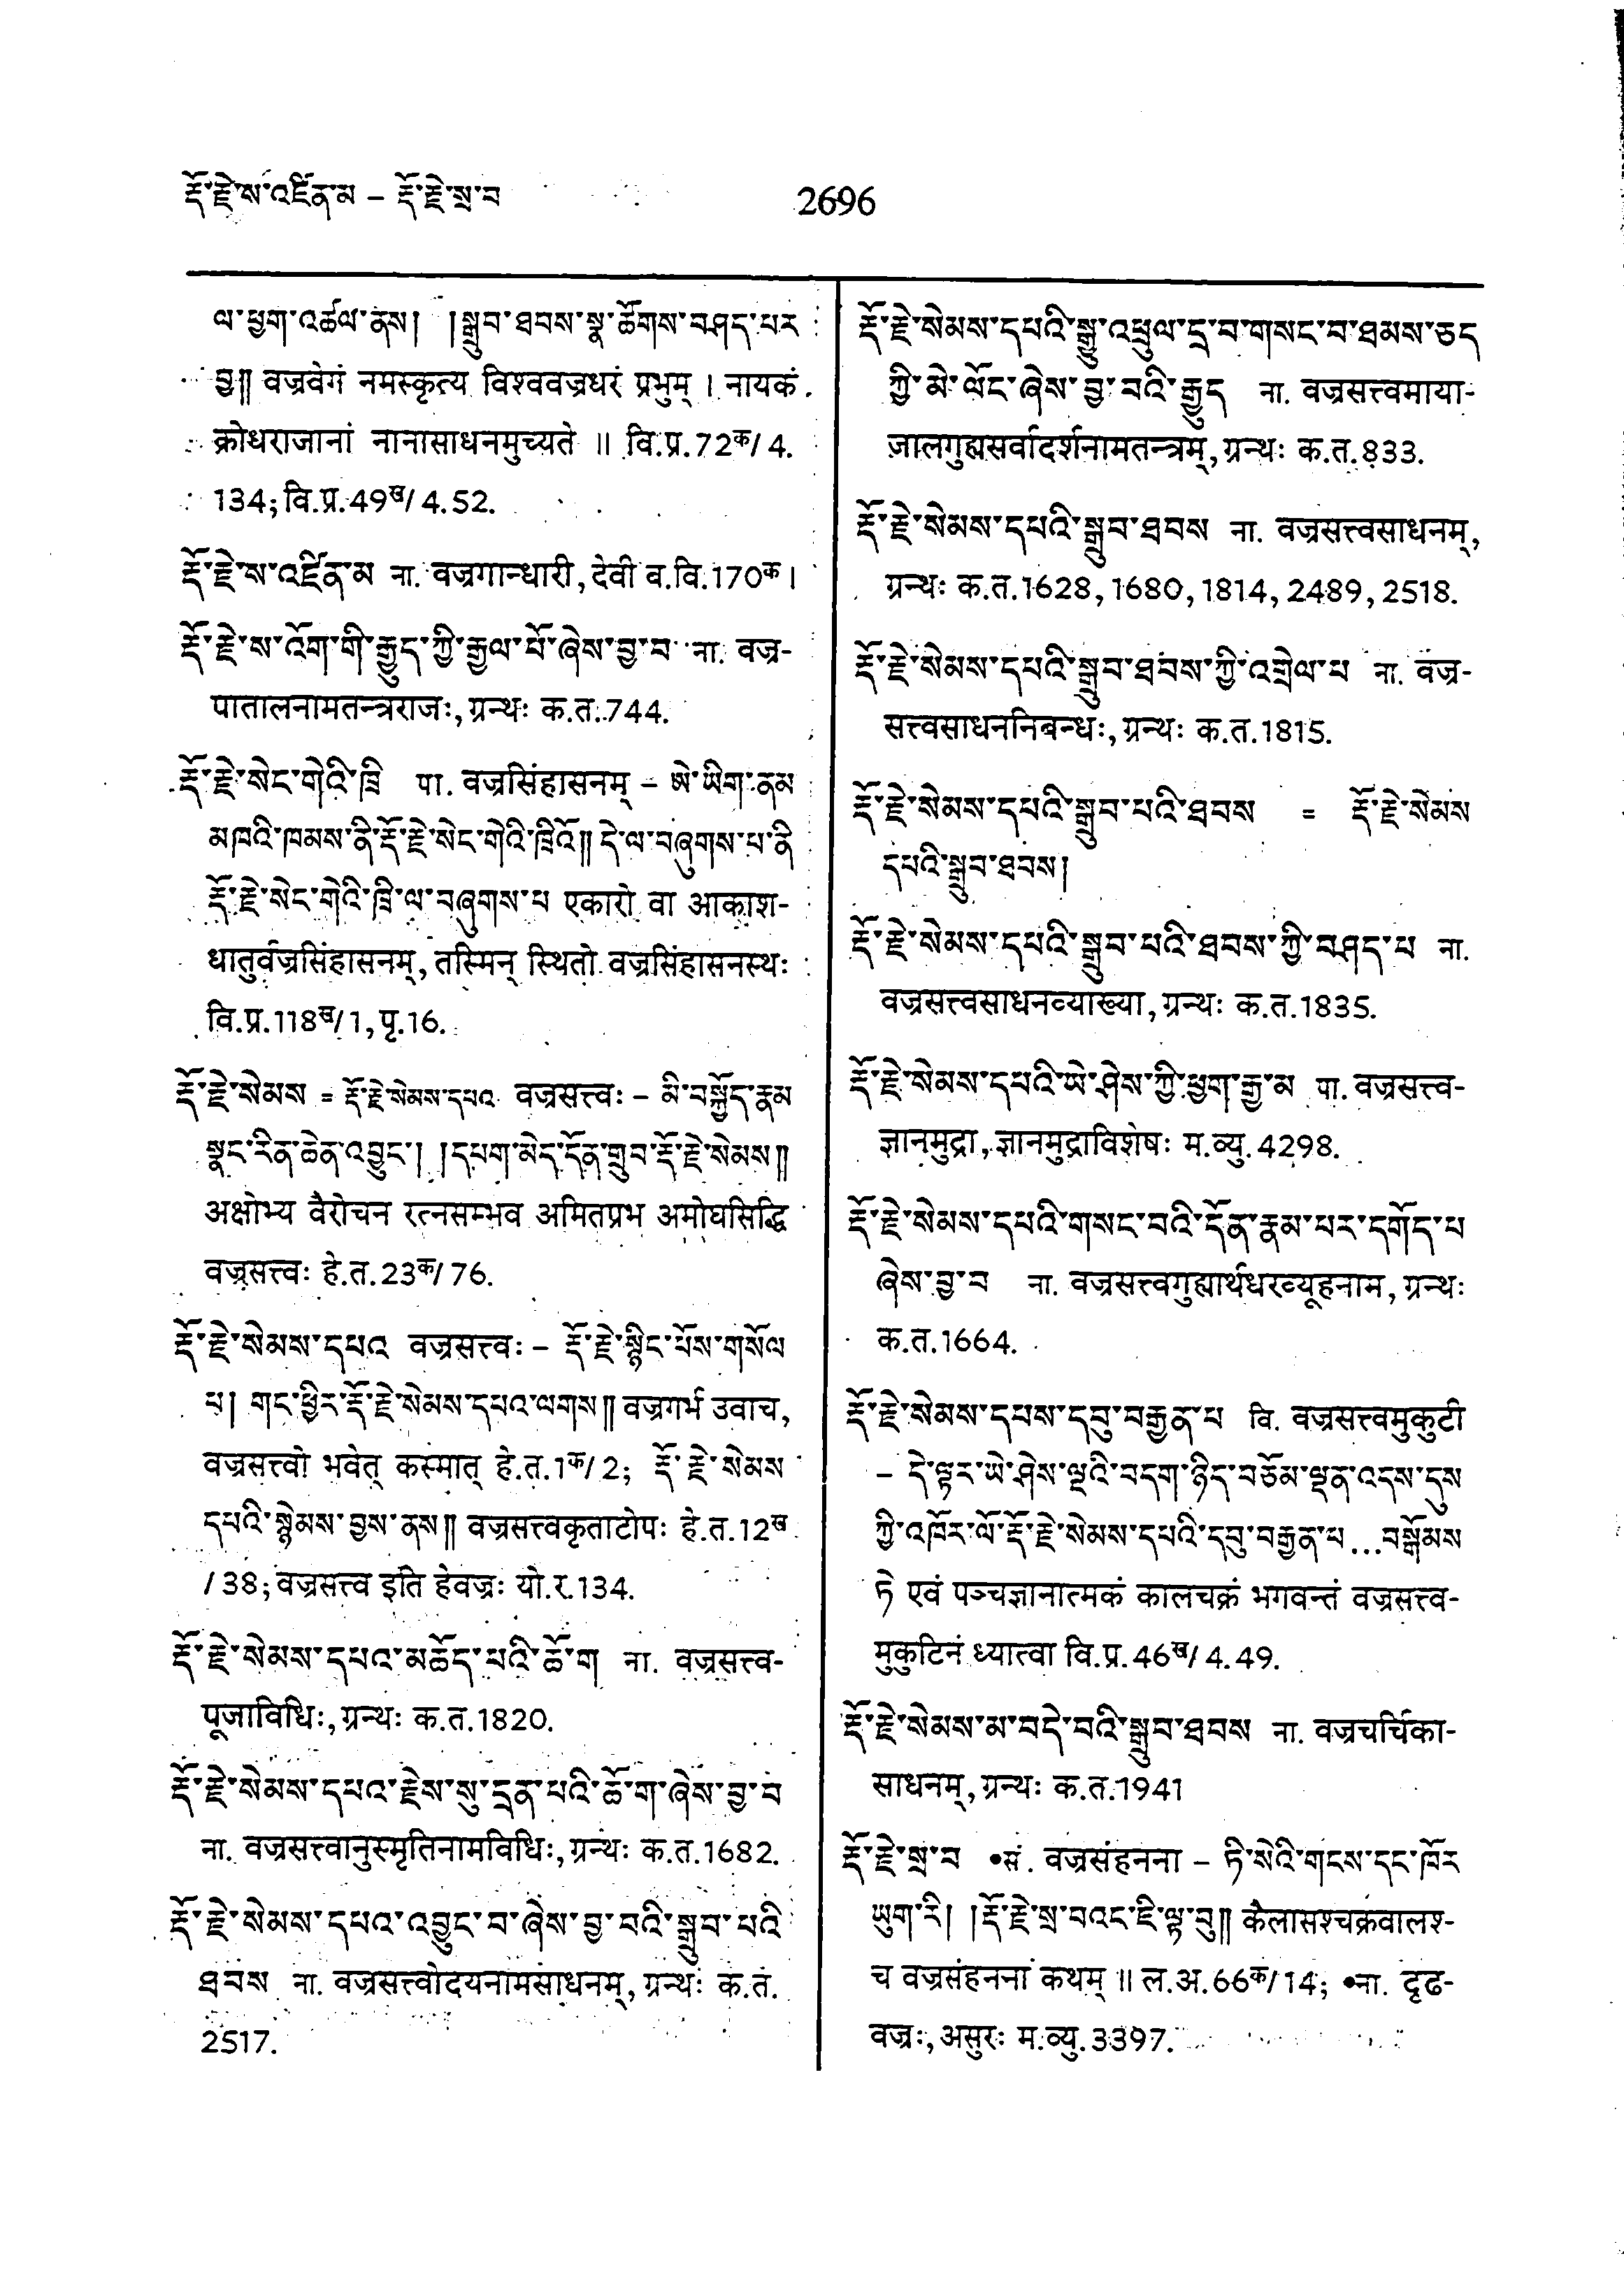 རྡོ་རྗེ་ས་འཛིན་མ – རྡོ་རྗེ་སྲ་བ
2696
ལ་ཕྱག་འཚལ་ནས། །སྒྲུབ་ཐབས་སྣ་ཚོགས་བཤད་པར
བྱ༎ वज्रवेगं नमस्कृत्य विश्ववज्रधरं प्रभुम् । नायकं
क्रोधराजानां नानासाधनमुच्यते ॥ वि.प्र.72क/4.
134; वि.प्र.49ख/4.52.
རྡོ་རྗེ་ས་འཛིན་མ ना. वज्रगान्धारी, देवी व.वि.170क।
རྡོ་རྗེ་ས་འོག་གི་རྒྱུད་ཀྱི་རྒྱལ་པོ་ཞེས་བྱ་བ ना. वज्र-
पातालनामतन्त्रराजः, ग्रन्थः क.त.744.
རྡོ་རྗེ་སེང་གེའི་ཁྲི पा. वज्रसिंहासनम् – ཨེ་ཡིག་ནམ
མཁའི་ཁམས་ནི་རྡོ་རྗེ་སེང་གེའི་ཁྲིའོ༎ དེ་ལ་བཞུགས་པ་ནི
རྡོ་རྗེ་སེང་གེའི་ཁྲི་ལ་བཞུགས་པ एकारो वा आकाश-
धातुर्वज्रसिंहासनम्, तस्मिन् स्थितो वज्रसिंहासनस्थः
वि.प्र.118ख/1, पृ.16.
རྡོ་རྗེ་སེམས = རྡོ་རྗེ་སེམས་དཔའ वज्रसत्त्वः – མི་བསྐྱོད་རྣམ
སྣང་རིན་ཆེན་འབྱུང་། །དཔག་མེད་དོན་གྲུབ་རྡོ་རྗེ་སེམས༎
अक्षोभ्य वैरोचन रत्नसम्भव अमितप्रभ अमोघसिद्धि
वज्रसत्त्वः हे.त.23क/76.
རྡོ་རྗེ་སེམས་དཔའ वज्रसत्त्वः – རྡོ་རྗེ་སྙིང་པོས་གསོལ
པ། གང་ཕྱིར་རྡོ་རྗེ་སེམས་དཔའ་ལགས༎ वज्रगर्भ उवाच,
वज्रसत्त्वो भवेत् कस्मात् हे.त.1क/2; རྡོ་རྗེ་སེམས
དཔའི་སྙེམས་བྱས་ནས༎ वज्रसत्त्वकृताटोपः हे.त.12ख
/38; वज्रसत्त्व इति हेवज्रः यो.र.134.
རྡོ་རྗེ་སེམས་དཔའ་མཆོད་པའི་ཆོ་ག ना. वज्रसत्त्व-
पूजाविधिः, ग्रन्थः क.त.1820.
རྡོ་རྗེ་སེམས་དཔའ་རྗེས་སུ་དྲན་པའི་ཆོ་ག་ཞེས་བྱ་བ
ना. वज्रसत्त्वानुस्मृतिनामविधिः, ग्रन्थः क.त.1682.
རྡོ་རྗེ་སེམས་དཔའ་འབྱུང་བ་ཞེས་བྱ་བའི་སྒྲུབ་པའི
ཐབས ना. वज्रसत्त्वोदयनामसाधनम्, ग्रन्थः क.त.
2517.
རྡོ་རྗེ་སེམས་དཔའི་སྒྱུ་འཕྲུལ་དྲ་བ་གསང་བ་ཐམས་ཅད
ཀྱི་མེ་ལོང་ཞེས་བྱ་བའི་རྒྱུད ना. वज्रसत्त्वमाया-
जालगुह्यसर्वादर्शनामतन्त्रम्, ग्रन्थः क.त.833.
རྡོ་རྗེ་སེམས་དཔའི་སྒྲུབ་ཐབས ना. वज्रसत्त्वसाधनम्,
ग्रन्थः क.त.1628, 1680, 1814, 2489, 2518.
རྡོ་རྗེ་སེམས་དཔའི་སྒྲུབ་ཐབས་ཀྱི་འགྲེལ་པ ना. वज्र-
सत्त्वसाधननिबन्धः, ग्रन्थः क.त.1815.
རྡོ་རྗེ་སེམས་དཔའི་སྒྲུབ་པའི་ཐབས = རྡོ་རྗེ་སེམས
དཔའི་སྒྲུབ་ཐབས།
རྡོ་རྗེ་སེམས་དཔའི་སྒྲུབ་པའི་ཐབས་ཀྱི་བཤད་པ ना.
वज्रसत्त्वसाधनव्याख्या, ग्रन्थः क.त.1835.
རྡོ་རྗེ་སེམས་དཔའི་ཡེ་ཤེས་ཀྱི་ཕྱག་རྒྱ་མ पा. वज्रसत्त्व-
ज्ञानमुद्रा, ज्ञानमुद्राविशेषः म.व्यु.4298.
རྡོ་རྗེ་སེམས་དཔའི་གསང་བའི་དོན་རྣམ་པར་དགོད་པ
ཞེས་བྱ་བ ना. वज्रसत्त्वगुह्यार्थधरव्यूहनाम, ग्रन्थः
क.त.1664.
རྡོ་རྗེ་སེམས་དཔས་དབུ་བརྒྱན་པ वि. वज्रसत्त्वमुकुटी
– དེ་ལྟར་ཡེ་ཤེས་ལྔའི་བདག་ཉིད་བཅོམ་ལྡན་འདས་དུས
ཀྱི་འཁོར་ལོ་རྡོ་རྗེ་སེམས་དཔའི་དབུ་བརྒྱན་པ...བསྒོམས
ཏེ एवं पञ्चज्ञानात्मकं कालचक्रं भगवन्तं वज्रसत्त्व-
मुकुटिनं ध्यात्वा वि.प्र.46ख/4.49.
རྡོ་རྗེ་སེམས་མ་བདེ་བའི་སྒྲུབ་ཐབས ना. वज्रचर्चिका-
साधनम्, ग्रन्थः क.त.1941
རྡོ་རྗེ་སྲ་བ •सं. वज्रसंहनना – ཏི་སེའི་གངས་དང་ཁོར
ཡུག་རི། །རྡོ་རྗེ་སྲ་བའང་ཇི་ལྟ་བུ༎ कैलासश्चक्रवालश्-
च वज्रसंहनना कथम् ॥ ल.अ.66क/14; •ना. दृढ-
वज्रः, असुरः म.व्यु.3397.